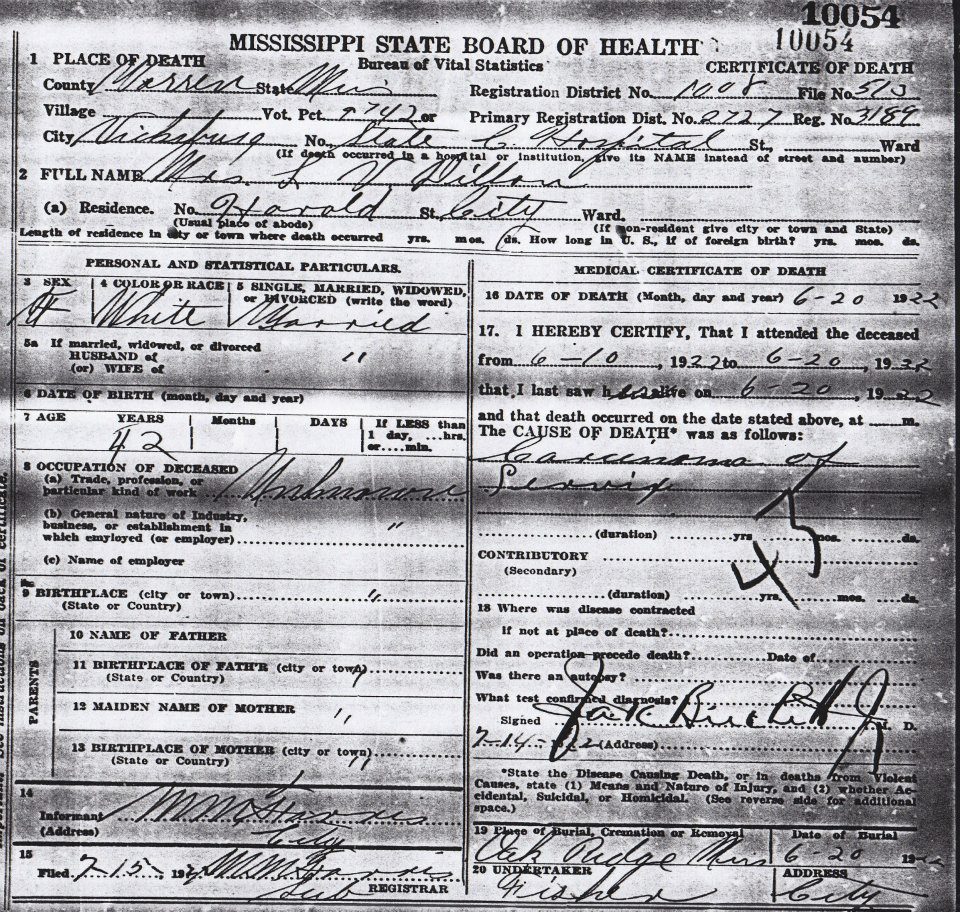 10054
10054
MISSISSIPPI STATE BOARD OF HEALTH
Bureau of Vital Statistics
CERTIFICATE OF DEATH
1 PLACE OF DEATH
County Warren State Miss
Registration District No. 1008 File No. 513
Village Vot. Pct. 742 or
Primary Registration Dist. No. 2727 Reg. No. 3189
City Vicksburg No. State C. Hospital St., Ward
(If death occurred in a hospital or institution, give its NAME instead of street and number)
2 FULL NAME Mrs. L V Dillon
(a) Residence. No. Harold St. City Ward.
(Usual place of abode) (If non-resident give city or town and State)
Length of residence in city or town where death occurred yrs. mos. ds. How long in U. S., if of foreign birth? yrs. mos. ds.
PERSONAL AND STATISTICAL PARTICULARS.
3 SEX 4 COLOR OR RACE 5 SINGLE, MARRIED, WIDOWED,
or DIVORCED (write the word)
F White Married
5a If married, widowed, or divorced
HUSBAND of "
(or) WIFE of
6 DATE OF BIRTH (month, day and year)
7 AGE YEARS Months DAYS If LESS than
1 day, ...hrs.
42 or....min.
8 OCCUPATION OF DECEASED
(a) Trade, profession, or
particular kind of work Unknown
(b) General nature of Industry,
business, or establishment in "
which employed (or employer)
(c) Name of employer
9 BIRTHPLACE (city or town) "
(State or Country)
PARENTS
10 NAME OF FATHER
11 BIRTHPLACE OF FATH'R (city or town) "
(State or Country)
12 MAIDEN NAME OF MOTHER "
13 BIRTHPLACE OF MOTHER (city or town)
(State or Country) "
14
Informant
(Address) City
15
Filed 7-15 192
Sub REGISTRAR
MEDICAL CERTIFICATE OF DEATH
16 DATE OF DEATH (Month, day and year) 6-20 1922
17. I HEREBY CERTIFY, That I attended the deceased
from 6-10, 1922 to 6-20, 1922
that I last saw her alive on 6-20, 1922
and that death occurred on the date stated above, at m.
The CAUSE OF DEATH* was as follows:
Carcinoma of
Cervix
(duration) yrs. mos. ds.
CONTRIBUTORY
(Secondary)
(duration) yrs. mos. ds.
18 Where was disease contracted
if not at place of death?
Did an operation precede death? Date of
Was there an autopsy?
What test confirmed diagnosis?
Signed Jack Birchett Jr M. D.
7-14-22 (Address)
*State the Disease Causing Death, or in deaths from Violent
Causes, state (1) Means and Nature of Injury, and (2) whether Ac-
cidental, Suicidal, or Homicidal. (See reverse side for additional
space.)
19 Place of Burial, Cremation or Removal Date of Burial
Oak Ridge Miss 6-20 1922
20 UNDERTAKER ADDRESS
Fisher City